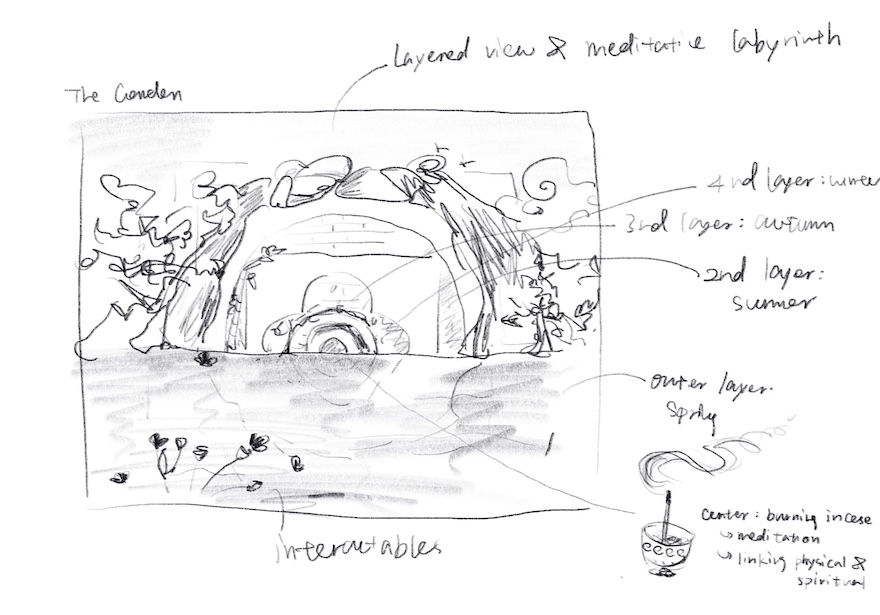 Layered view & meditative labyrinth
The Garden
4nd layer: winter
3rd layer: autumn
2nd layer:
summer
outer layer.
Spring
center: burning incese
↳ meditation
↳ linking physical &
spiritual
interactables